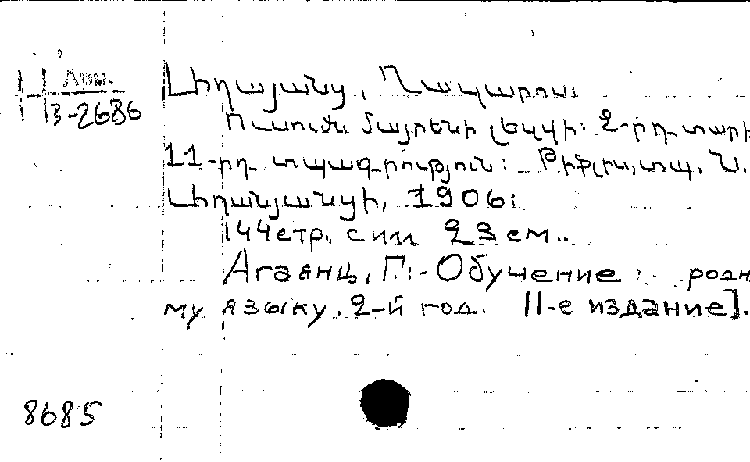 Н Арм.
3-2686
Աղայանց, Ղազարոս
Ուսումն մայրենի լեզվի: 2-րդ տարի
11-րդ տպագրություն: Թիֆլիս, տպ. Ն.
Աղանյանցի, 1906:
144стр. с илл 23 см..
Агаянц, Г.:- Обучение родн
му языку. 2-й год. 11-е издание].
8685